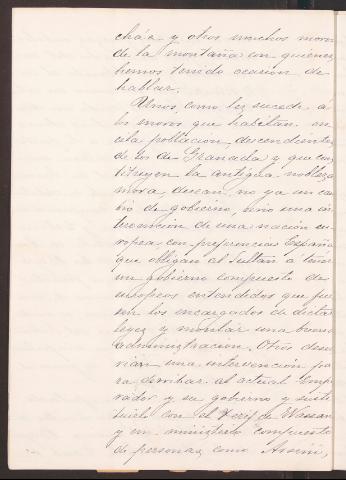 cha's y otros muchos moros
de la montaña con quienes
hemos tenido ocasión de
hablar.
Unos, como les sucede á
los moros que habitan en
esta población, descendientes
de los de Granada y que cons
tituyen la antigua nobleza
mora, desean, no ya un cam
bio de gobierno, sino una in
tervención de una nación eu
ropea, con preferencia España
que obligara al Sultán á tener
un gobierno compuesto de
europeos entendidos que fue
sen los encargados de dictar
leyes y montar una buena
administración. Otros desea
rían una intervención pa
ra derribar al actual Empe
rador y su gobierno y susti
tuirlo con el Xerif de Wassan
y un ministerio compuesto
de personas como